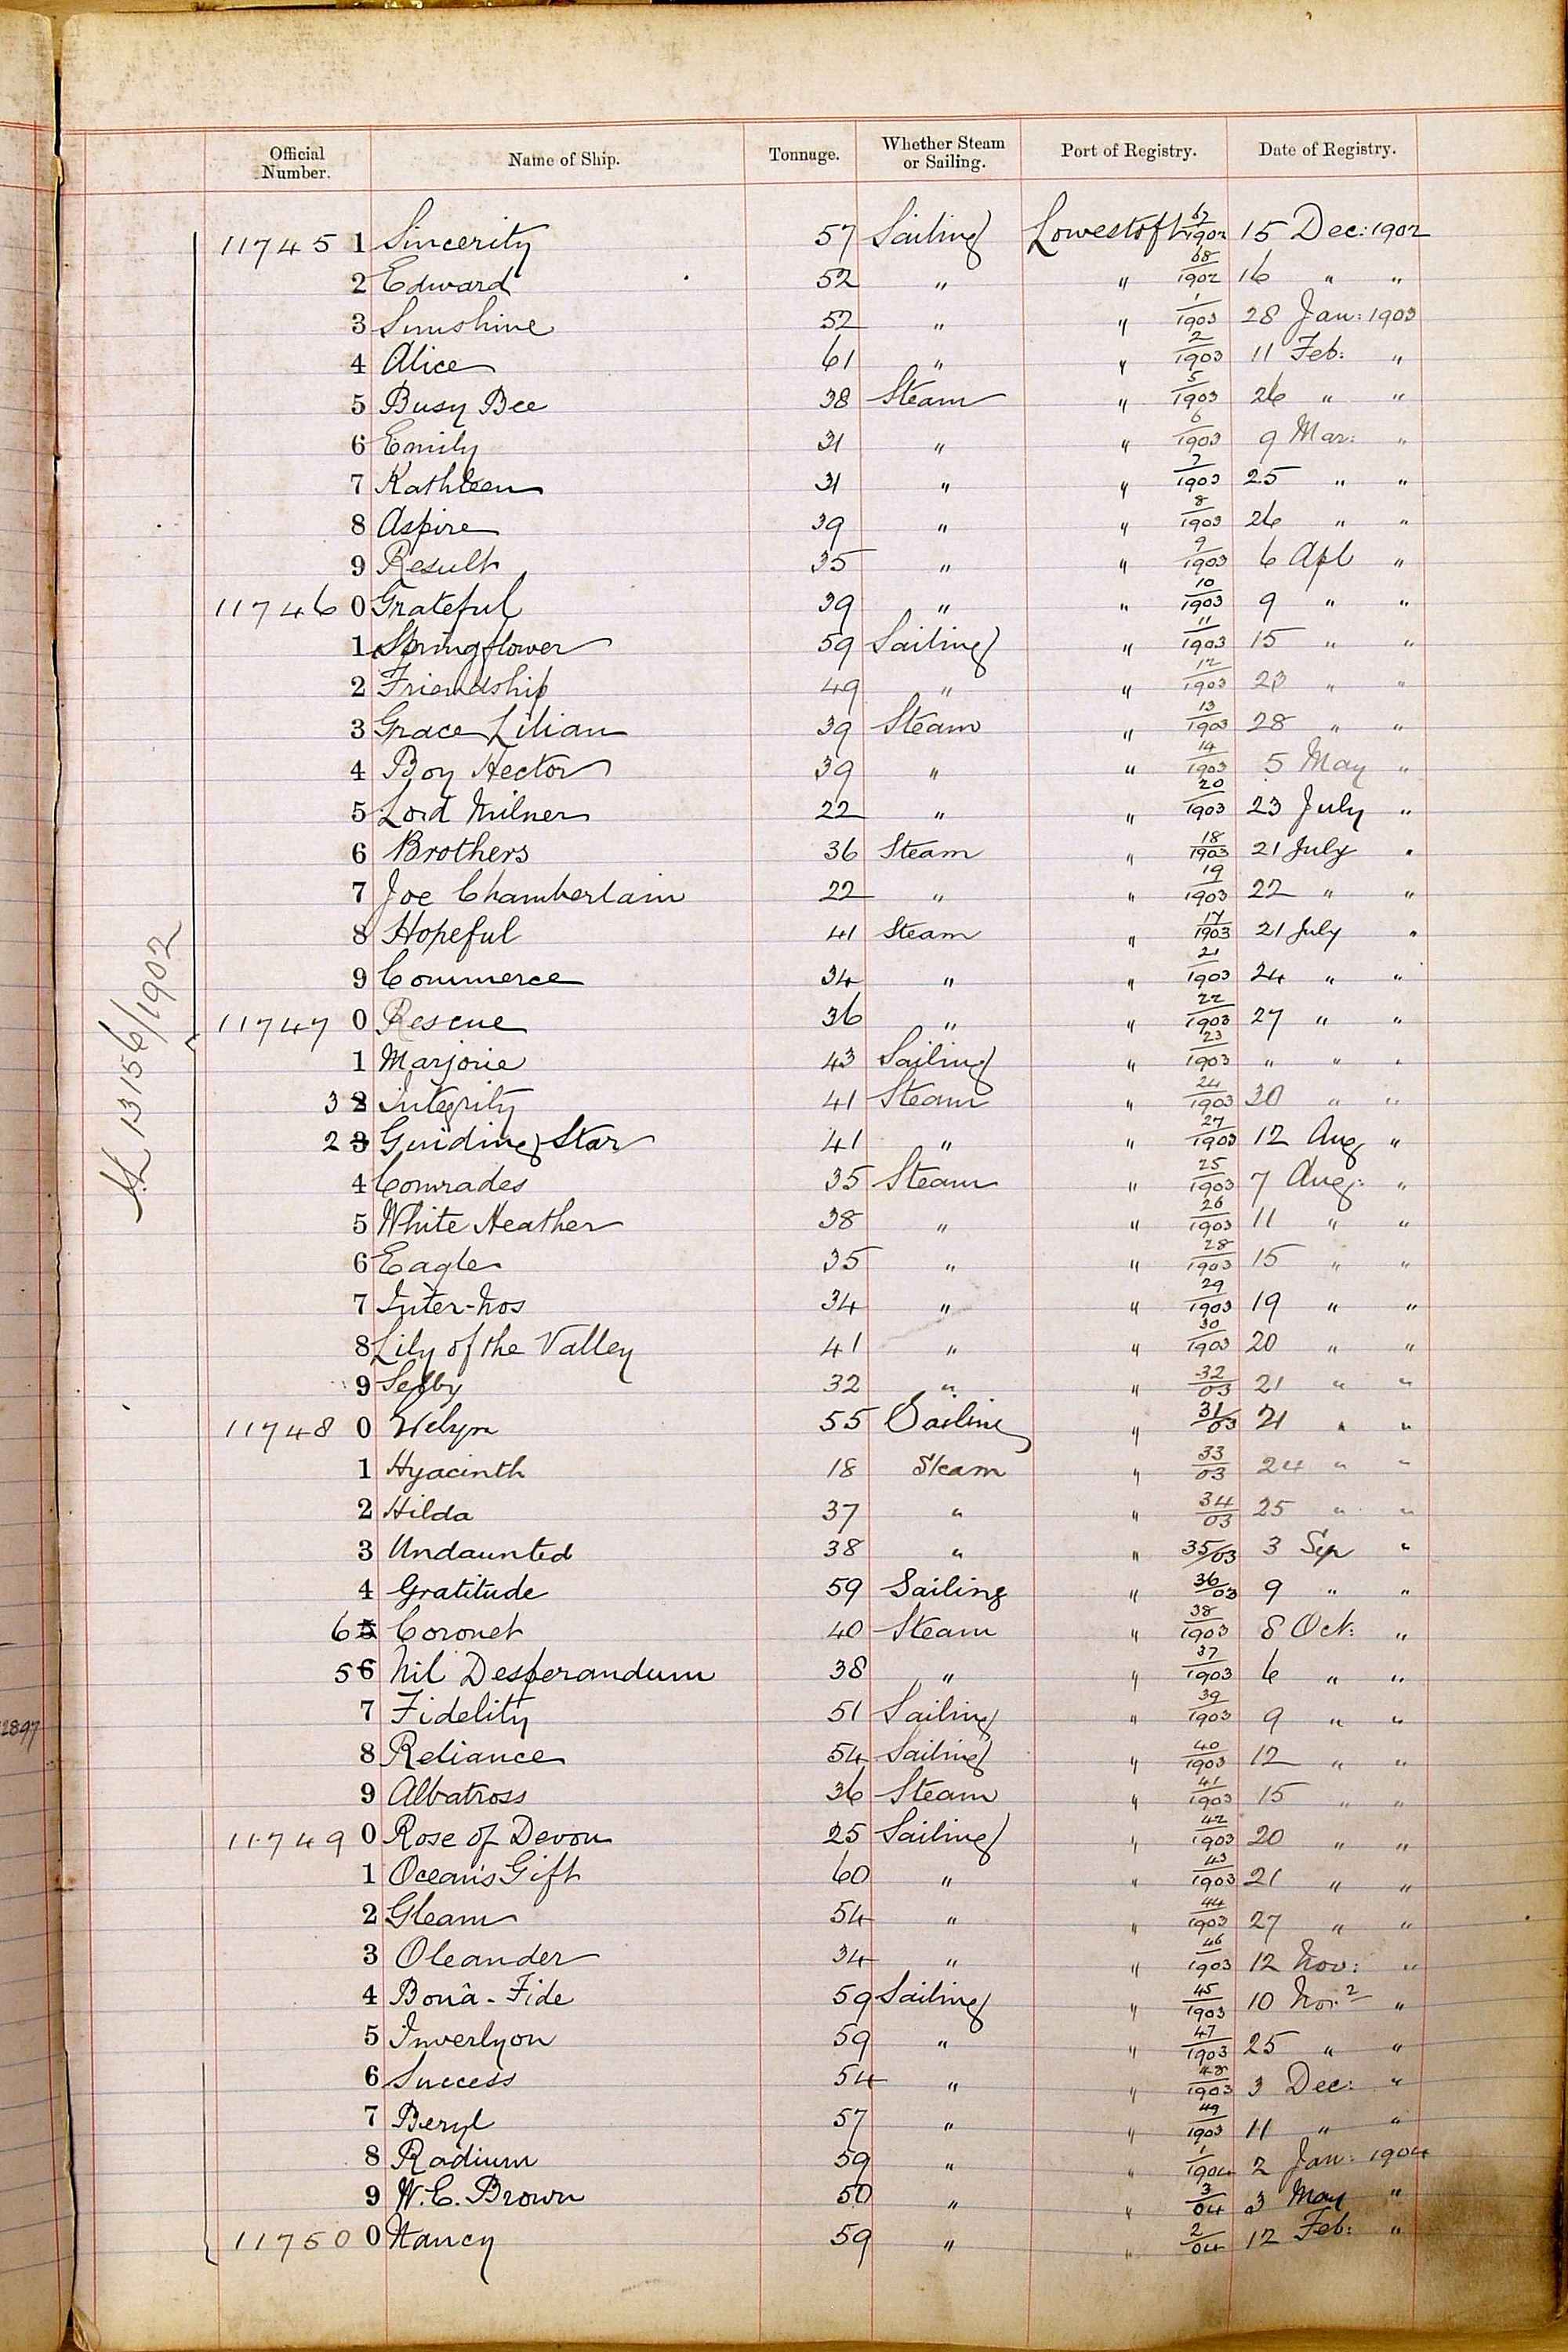 Official Number. Name of Ship. Tonnage. Whether Steam or Sailing. Port of Registry. Date of Registry.
11745 1 Sincerity 57 Sailing Lowestoft 67/1902 15 Dec: 1902
2 Edward 52 " " 68/1902 16 " "
3 Sunshine 52 " " 1/1903 28 Jan: 1903
4 Alice 61 " " 2/1903 11 Feb: "
5 Busy Bee 38 Steam " 5/1903 26 " "
6 Emily 31 " " 6/1903 9 Mar: "
7 Kathleen 31 " " 7/1903 25 " "
8 Aspire 39 " " 8/1903 26 " "
9 Result 35 " " 9/1903 6 Apl "
11746 0 Grateful 39 " " 10/1903 9 " "
1 Springflower 59 Sailing " 11/1903 15 " "
2 Friendship 49 " " 12/1903 23 " "
3 Grace Lilian 39 Steam " 13/1903 28 " "
4 Boy Hector 39 " " 14/1903 5 May "
5 Lord Milner 22 " " 20/1903 23 July "
6 Brothers 36 Steam " 18/1903 21 July "
7 Joe Chamberlain 22 " " 19/1903 22 " "
8 Hopeful 41 Steam " 17/1903 21 July "
9 Commerce 34 " " 21/1903 24 " "
11747 0 Rescue 36 " " 22/1903 27 " "
1 Marjorie 43 Sailing " 23/1903 " " "
3 2 Integrity 41 Steam " 24/1903 30 " "
2 3 Guiding Star 41 " " 27/1903 12 Aug "
4 Comrades 35 Steam " 25/1903 7 Aug: "
5 White Heather 38 " " 26/1903 11 " "
6 Eagle 35 " " 28/1903 15 " "
7 Inter-Nos 34 " " 29/1903 19 " "
8 Lily of the Valley 41 " " 30/1903 20 " "
9 Selby 32 " " 32/03 21 " "
11748 0 55 Sailing " 31/03 21 " "
1 Hyacinth 18 Steam " 33/03 24 " "
2 Hilda 37 " " 34/03 25 " "
3 Undaunted 38 " " 35/03 3 Sep "
4 Gratitude 59 Sailing " 36/03 9 " "
6 5 Coronet 40 Steam " 38/1903 8 Oct: "
5 6 Nil Desperandum 38 " " 37/1903 6 " "
7 Fidelity 51 Sailing " 39/1903 9 " "
8 Reliance 54 Sailing " 40/1903 12 " "
9 Albatross 36 Steam " 41/1903 15 " "
11749 0 Rose of Devon 25 Sailing " 42/1903 20 " "
1 Ocean's Gift 60 " " 43/1903 21 " "
2 Gleam 54 " " 44/1903 27 " "
3 Oleander 34 " " 46/1903 12 Nov: "
4 Bonâ-Fide 59 Sailing " 45/1903 10 Nov. "
5 Inverlyon 59 " " 47/1903 25 " "
6 Success 54 " " 48/1903 3 Dec: "
7 Beryl 57 " " 49/1903 11 " "
8 Radium 59 " " 1/1904 2 Jan: 1904
9 W.E. Brown 50 " " 3/04 3 May "
11750 0 Nancy 59 " " 2/04 12 Feb: "
13156/1902
2897